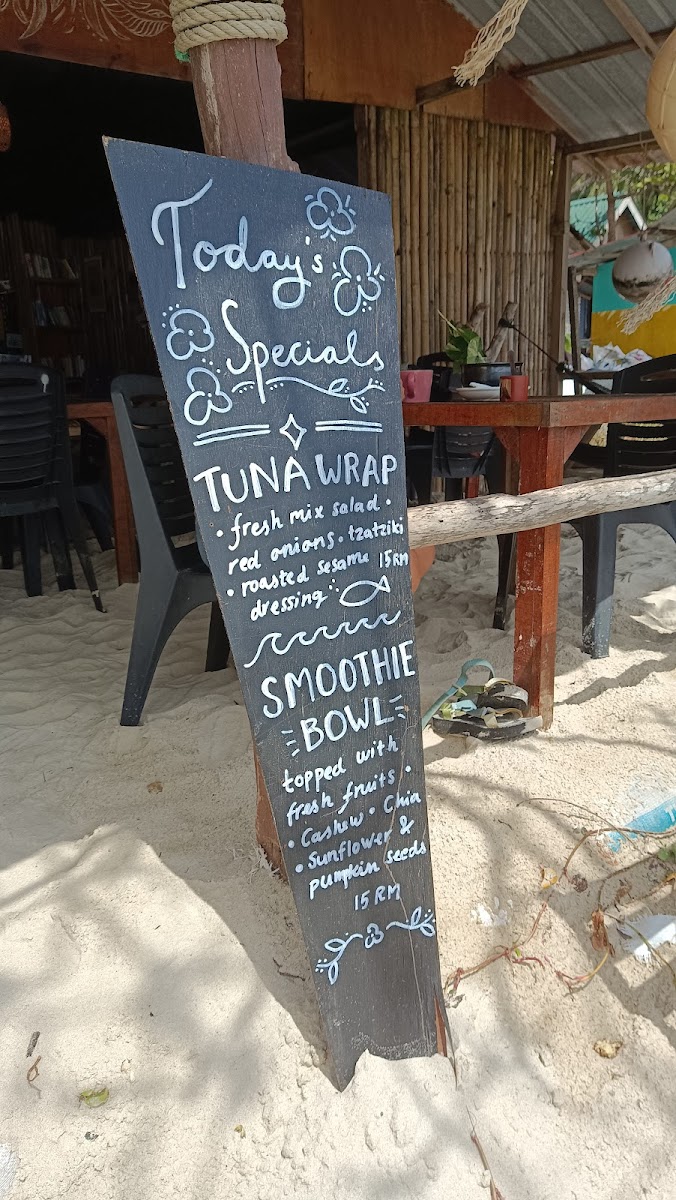 Today's
Specials
TUNA WRAP
• fresh mix salad •
red onions • tzatziki
• roasted sesame 15RM
dressing
SMOOTHIE
BOWL
topped with
fresh fruits •
• Cashew • Chia
• Sunflower &
pumpkin seeds
15 RM